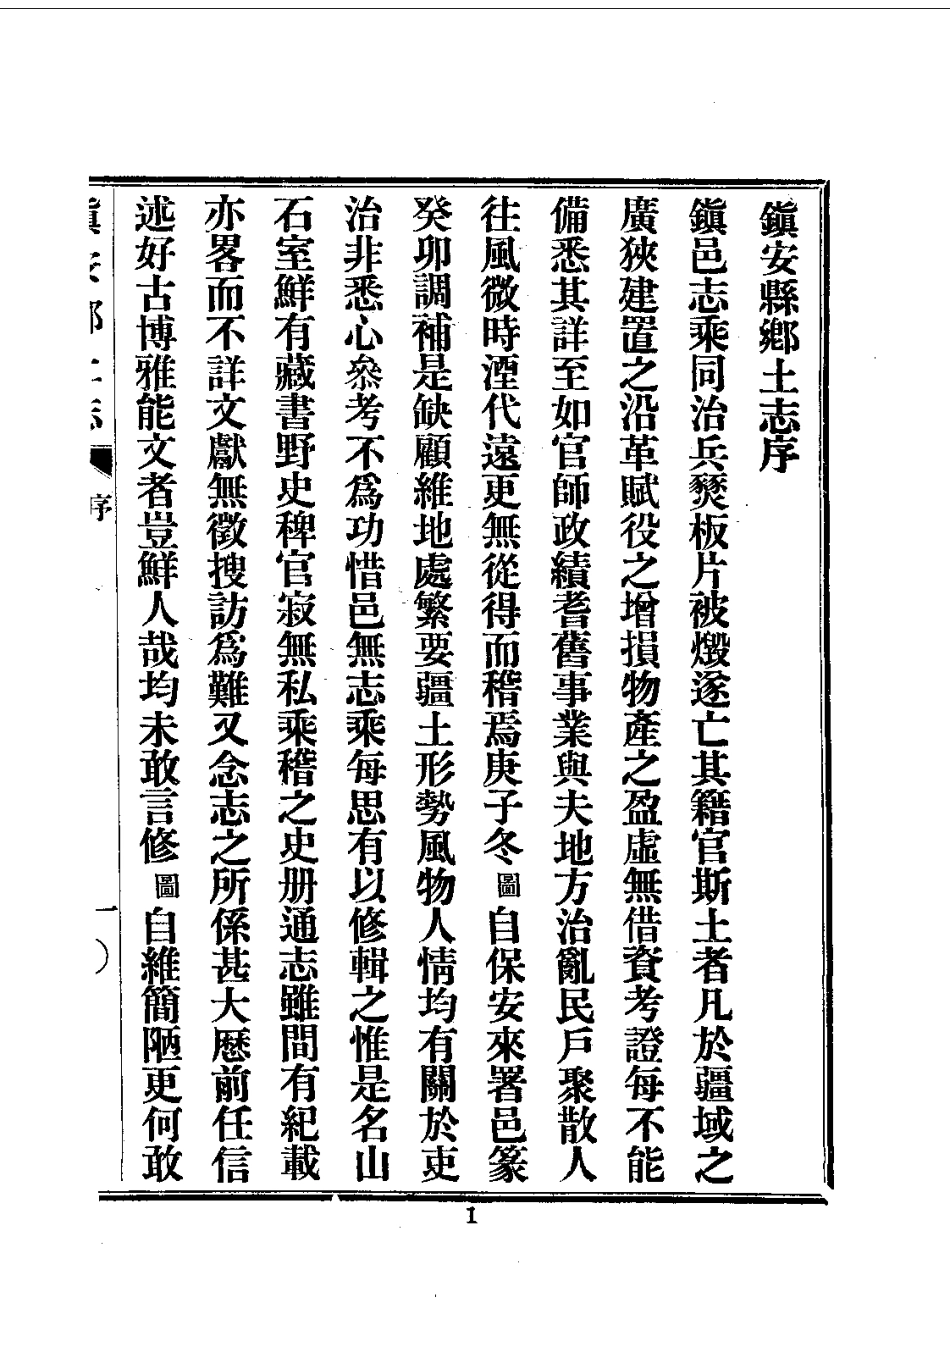 鎭安縣鄉土志序
鎭邑志乘同治兵燹板片被燬遂亡其籍官斯土者凡於疆域之
廣狹建置之沿革賦役之增損物產之盈虛無借資考證每不能
備悉其詳至如官師政績耆舊事業與夫地方治亂民戶聚散人
往風微時湮代遠更無從得而稽焉庚子冬圖自保安來署邑篆
癸卯調補是缺顧維地處繁要疆土形勢風物人情均有關於吏
治非悉心叅考不爲功惜邑無志乘每思有以修輯之惟是名山
石室鮮有藏書野史稗官寂無私乘稽之史册通志雖間有紀載
亦畧而不詳文獻無徵搜訪爲難又念志之所係甚大歷前任信
述好古博雅能文者豈鮮人哉均未敢言修圖自維簡陋更何敢
鎭安鄉土志 序 一
1